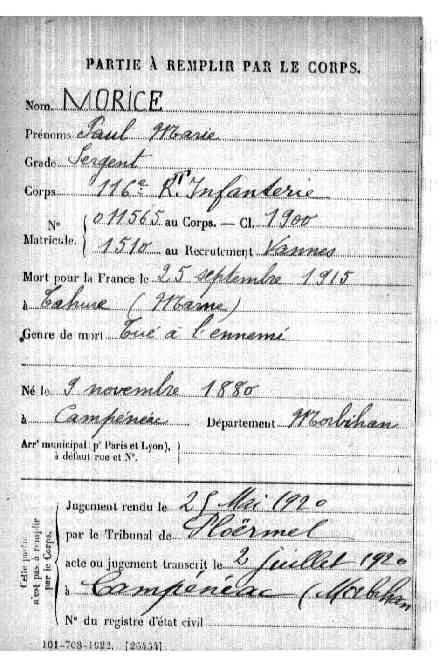 PARTIE À REMPLIR PAR LE CORPS.
Nom MORICE
Prénoms Paul Marie
Grade Sergent
Corps 116e Rt Infanterie
N° Matricule. 011565 au Corps. — Cl. 1900
1510 au Recrutement Vannes
Mort pour la France le 25 septembre 1915
à Tahure (Marne)
Genre de mort Tué à l'ennemi
Né le 9 novembre 1880
à Campénéac Département Morbihan
Arrt municipal (pr Paris et Lyon),
à défaut rue et N°.
Cette partie n'est pas à remplir par le Corps.
Jugement rendu le 25 Mai 1920
par le Tribunal de Ploërmel
acte ou jugement transcrit le 2 juillet 1920
à Campénéac (Morbihan
N° du registre d'état civil
101-708-1922. [26434]